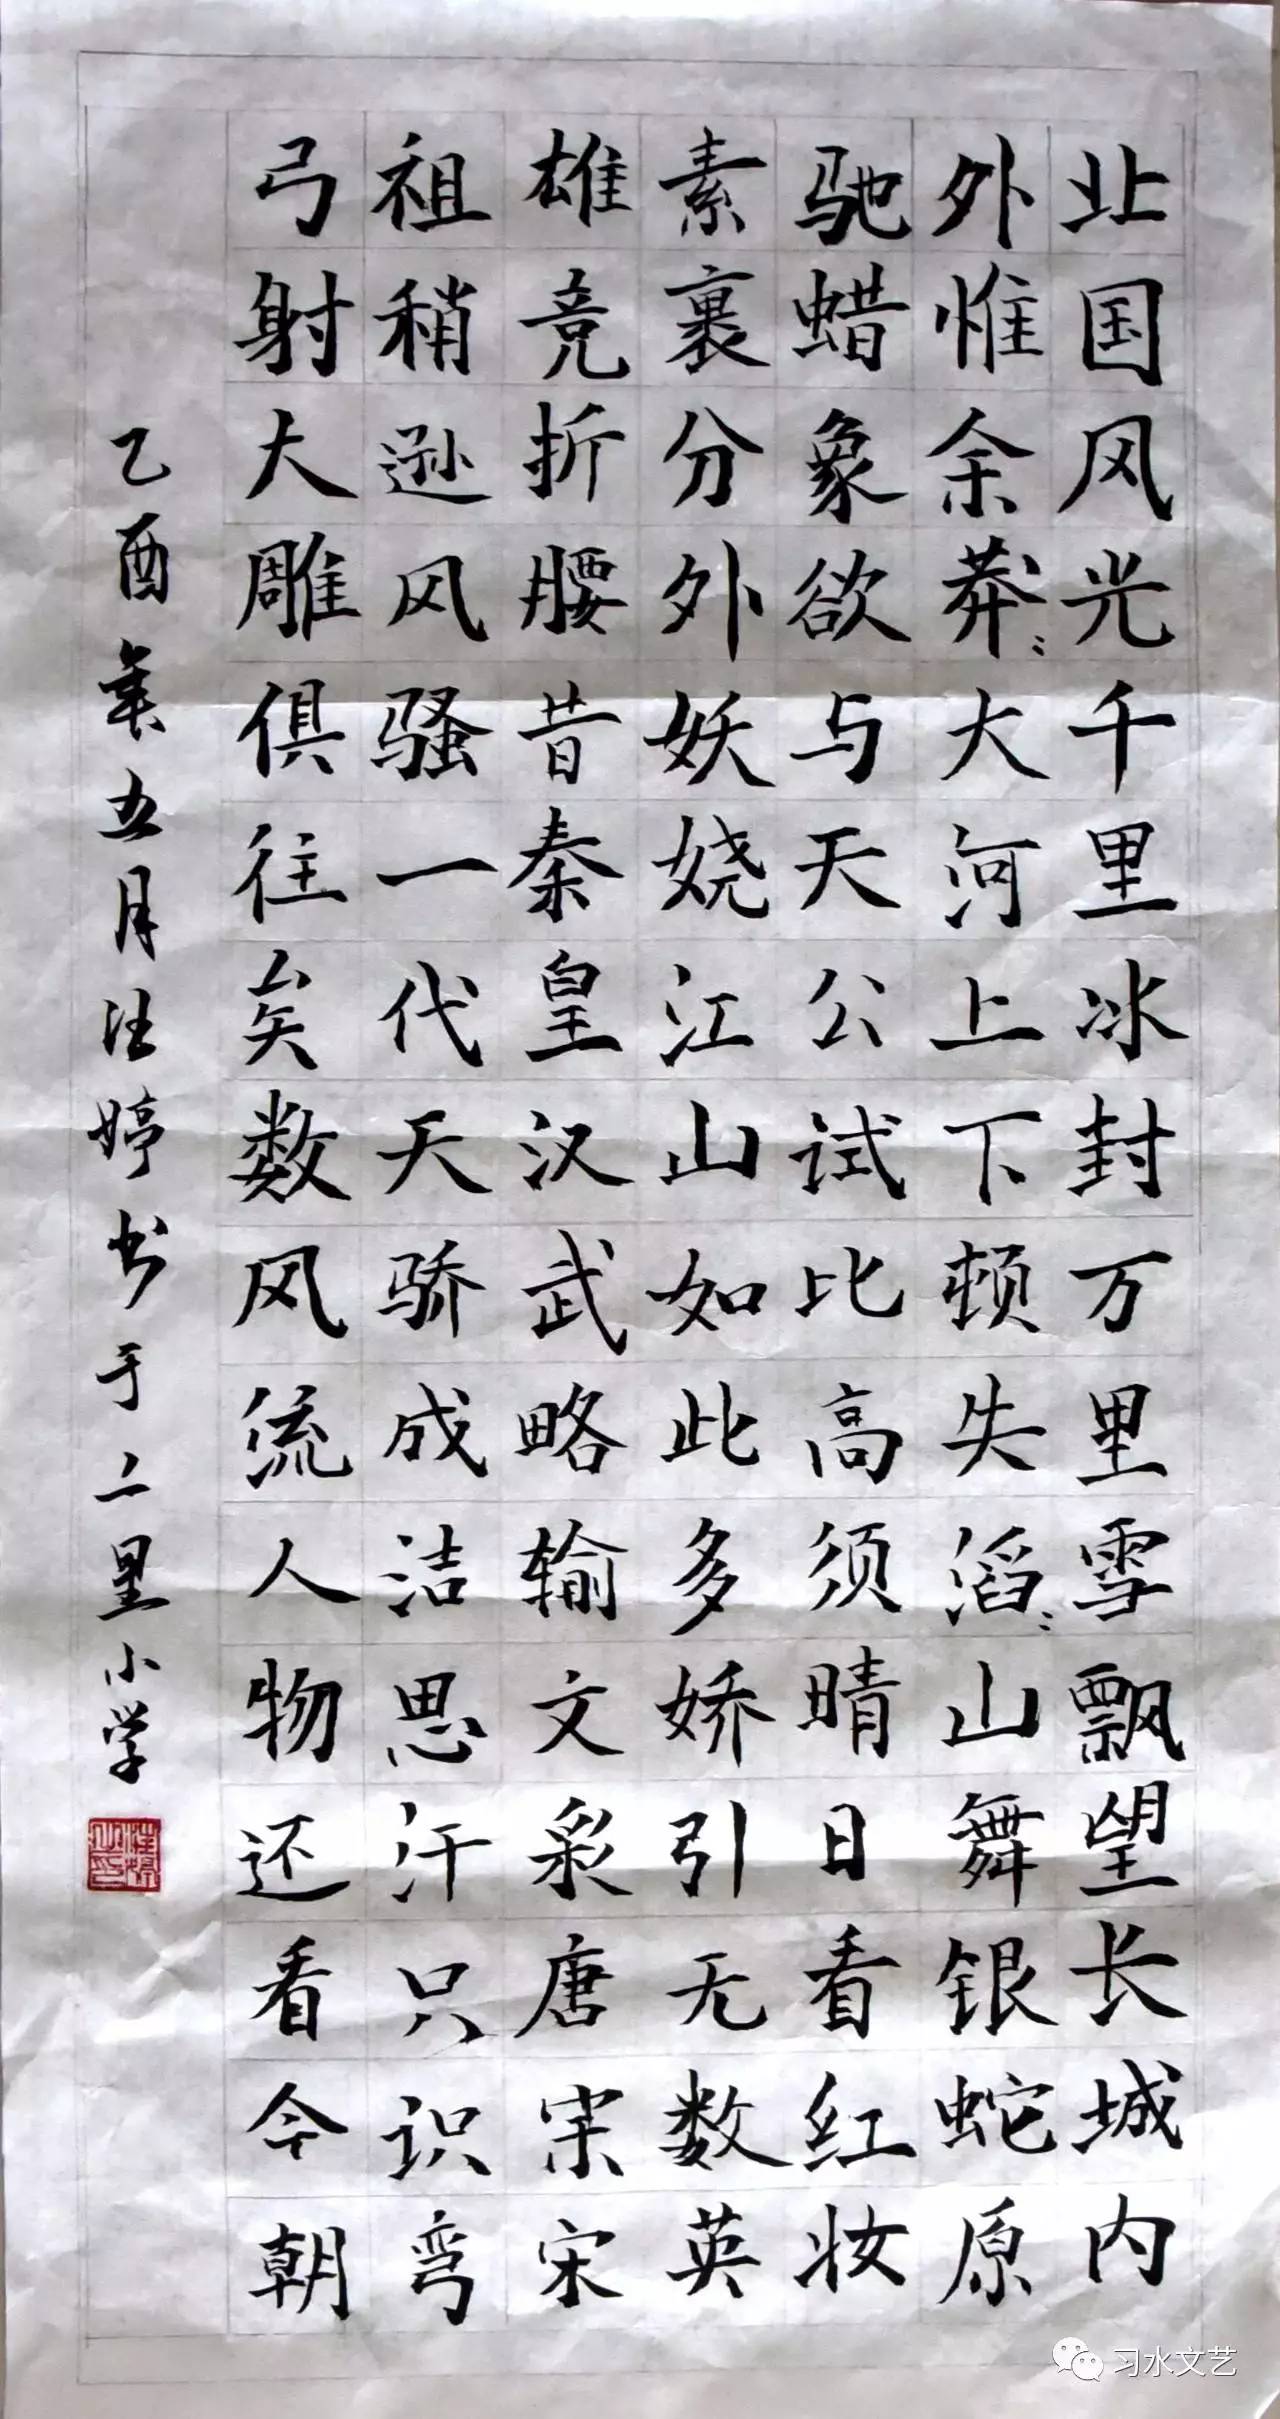 北国风光千里冰封万里雪飘望长城内
外惟余莽々大河上下顿失滔々山舞银蛇原
驰蜡象欲与天公试比高须晴日看红妆
素裹分外妖娆江山如此多娇引无数英
雄竞折腰昔秦皇汉武略输文采唐宗宋
祖稍逊风骚一代天骄成洁思汗只识弯
弓射大雕俱往矣数风流人物还看今朝
乙酉年五月汪婷书于二里小学
习水文艺